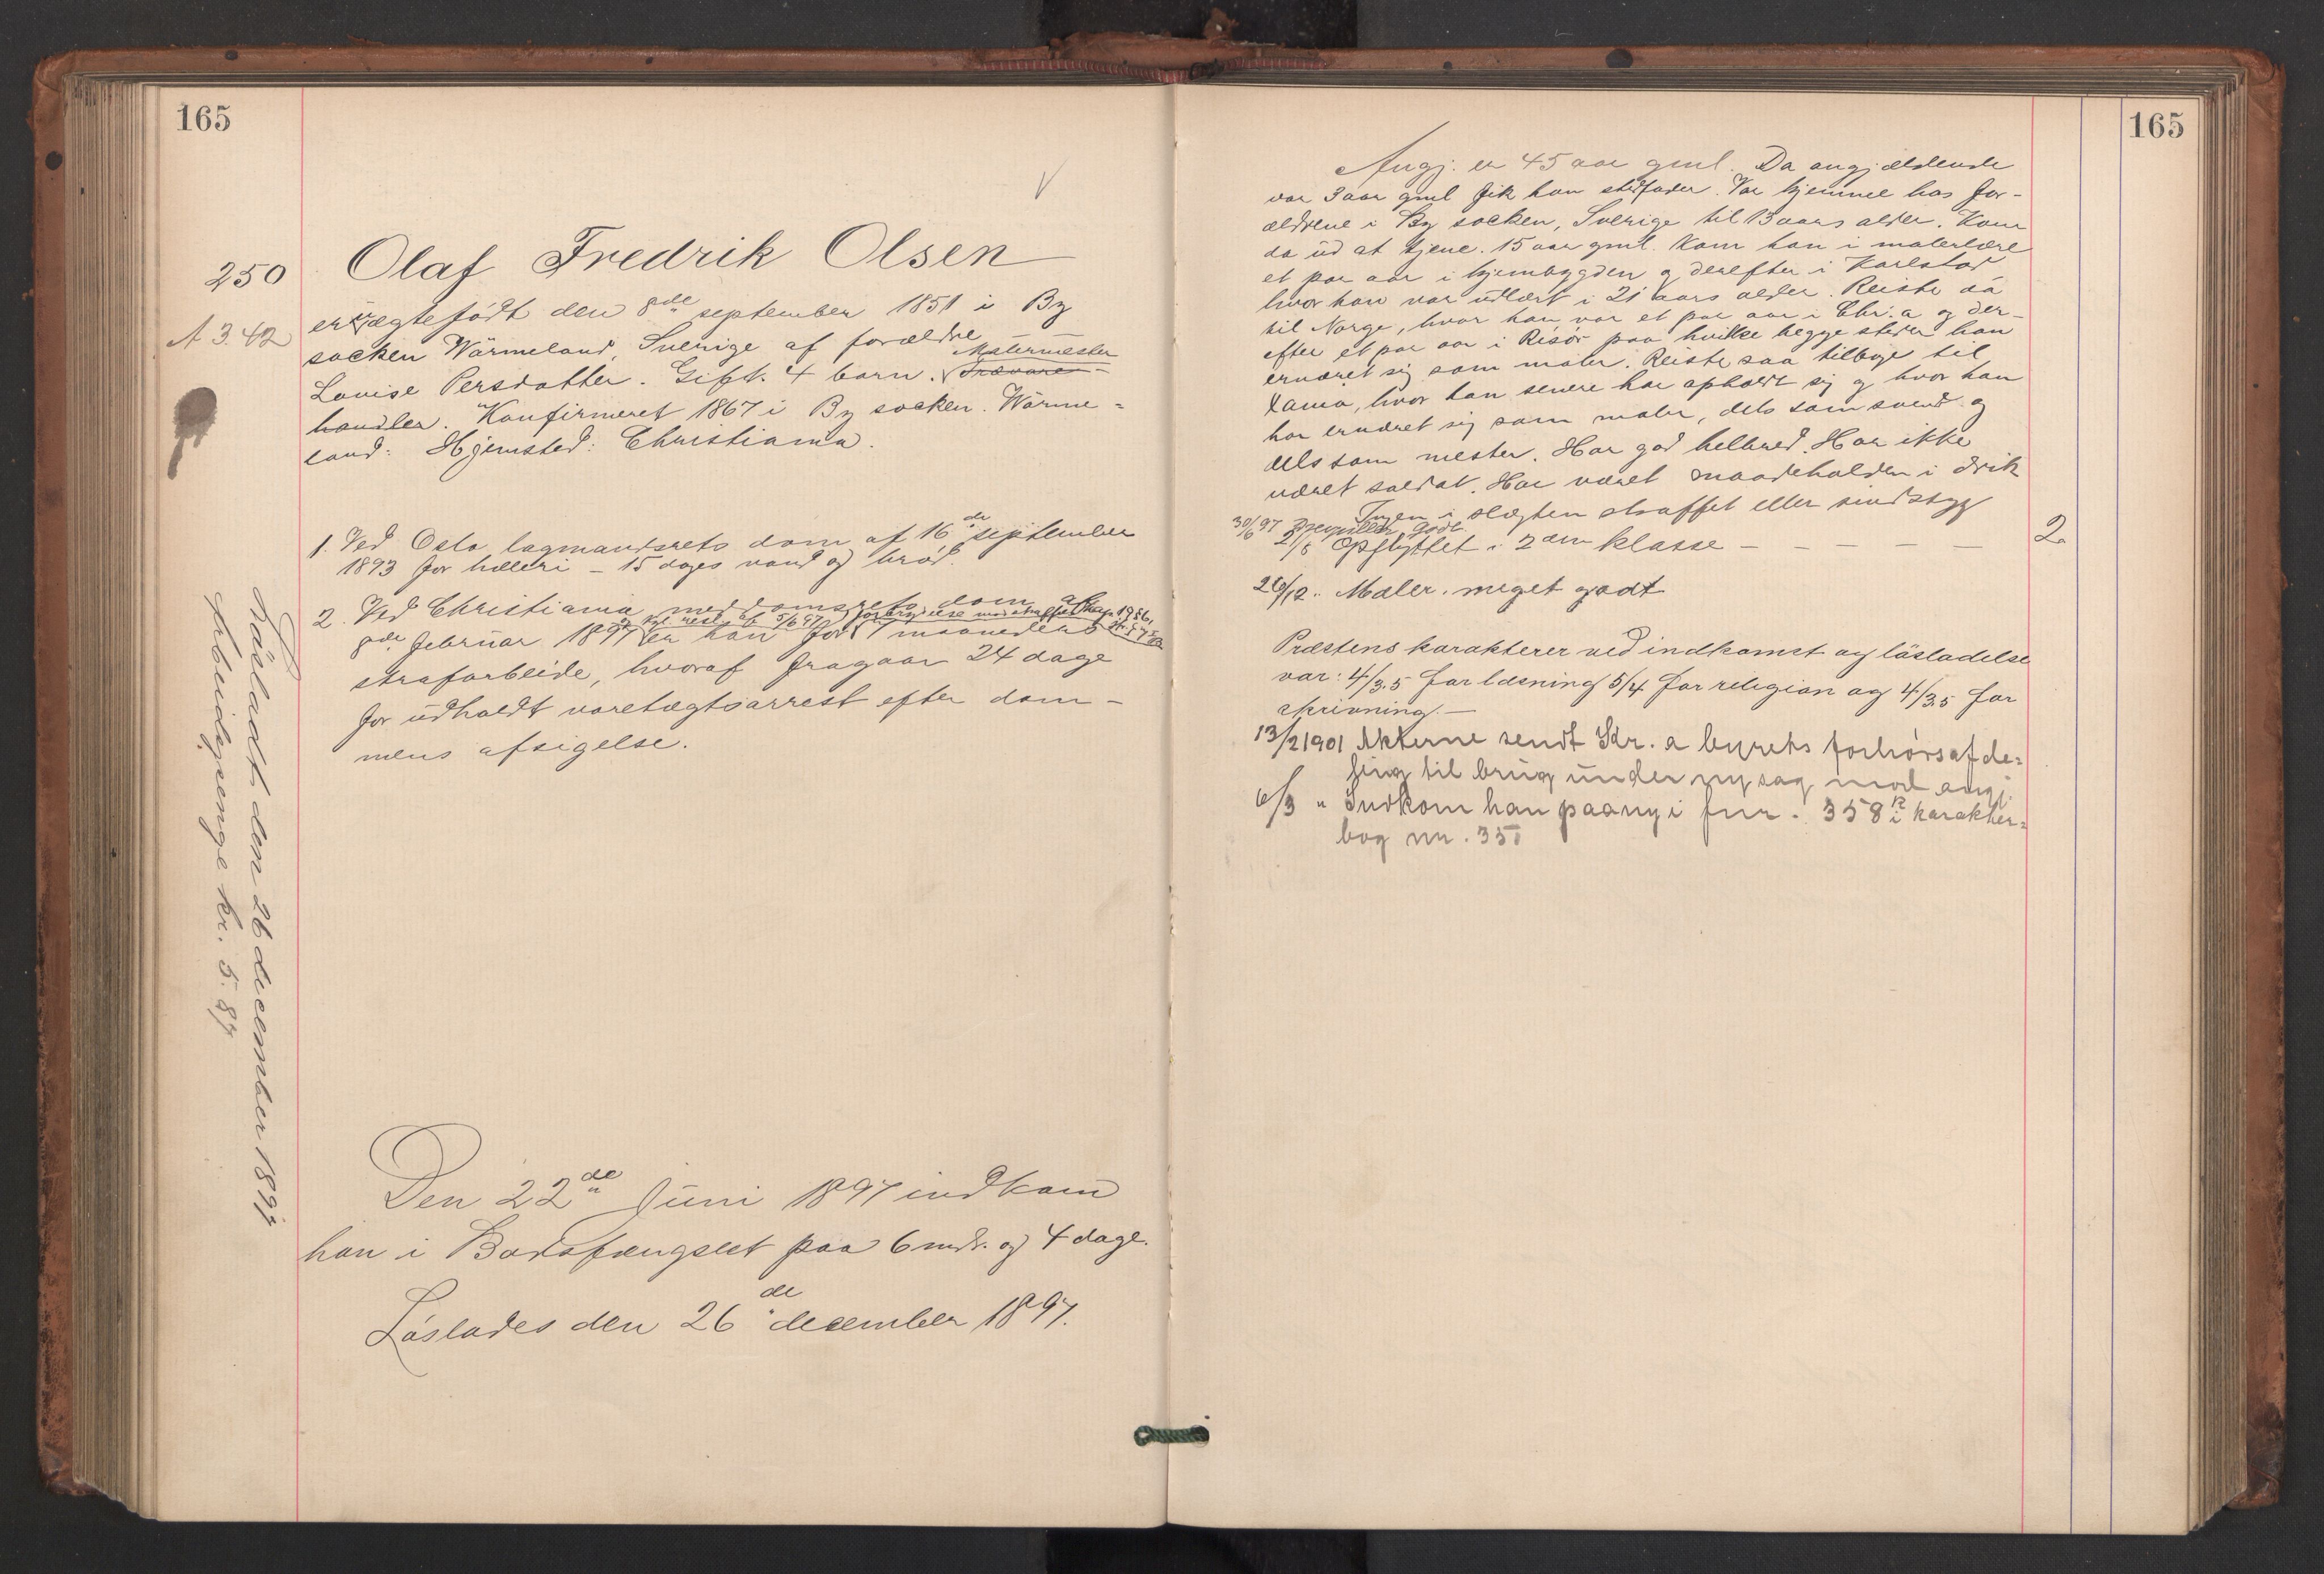 165
250
A 3.42
Olaf Fredrik Olsen
er uægtefödt den 8de september 1851 i By
socken Wärmeland, Sverige af forældre
Malermester
Lovise Persdatter. Gift. 4 barn. Trævare-
handler. Konfirmeret 1867 i By socken. Wärme=
land. Hjemsted: Christiania.
1. Ved Oslo lagmandsrets dom af 16de september
1893 for hæleri – 15 dages vand og bröd.
2. Ved Christiania meddomsrets dom af
8de februar 1897 er han for 7 maaneders
strafarbeide, hvoraf fragaar 24 dage
for udholdt varetægtsarrest efter dom-
mens afsigelse.
Den 22de Juni 1897 indkom
han i Bodsfængslet paa 6 mdr. og 4 dage.
Löslades den 26de december 1897.
Lösladt den 26 december 1897
Arbeidspenge kr. 5.87
165
Angj. er 45 aar gml. Da angjældende
var 3 aar gml fik han stedfader. Var hjemme hos for-
ældrene i By socken, Sverige til 13 aars alder. Kom
da ud at tjene. 15 aar gml. kom han i malerlære
et par aar i hjembygden og derefter i Karlstad
hvor han var udlært i 21 aars alder. Reiste da
til Norge, hvor han var et par aar i Chr.a og der-
efter et par aar i Risör paa hvilke begge steder han
ernæret sig som maler. Reiste saa tilbage til
Xania, hvor han senere har opholdt sig og hvor han
har ernæret sig som maler, dels som svend og
dels som mester. Har god helbred. Har ikke
været soldat. Har været maadeholden i drik
Ingen i slægten straffet eller sindssyg
30/6 97 godt.
2/8 Opflyttet i 2den klasse – – – – – 2.
26/12. Maler. meget godt
Præstens karakterer ved indkomst og lösladelse
var: 4/3.5 for læsning 5/4 for religion og 4/3.5 for
skrivning. –
13/2 1901 Akterne sendt Kr.a byrets forhörsafde=
ling til brug under ny sag mod angj.
6/3 " Indkom han paany i fnr. 358 i karakter=
bog nr. 35